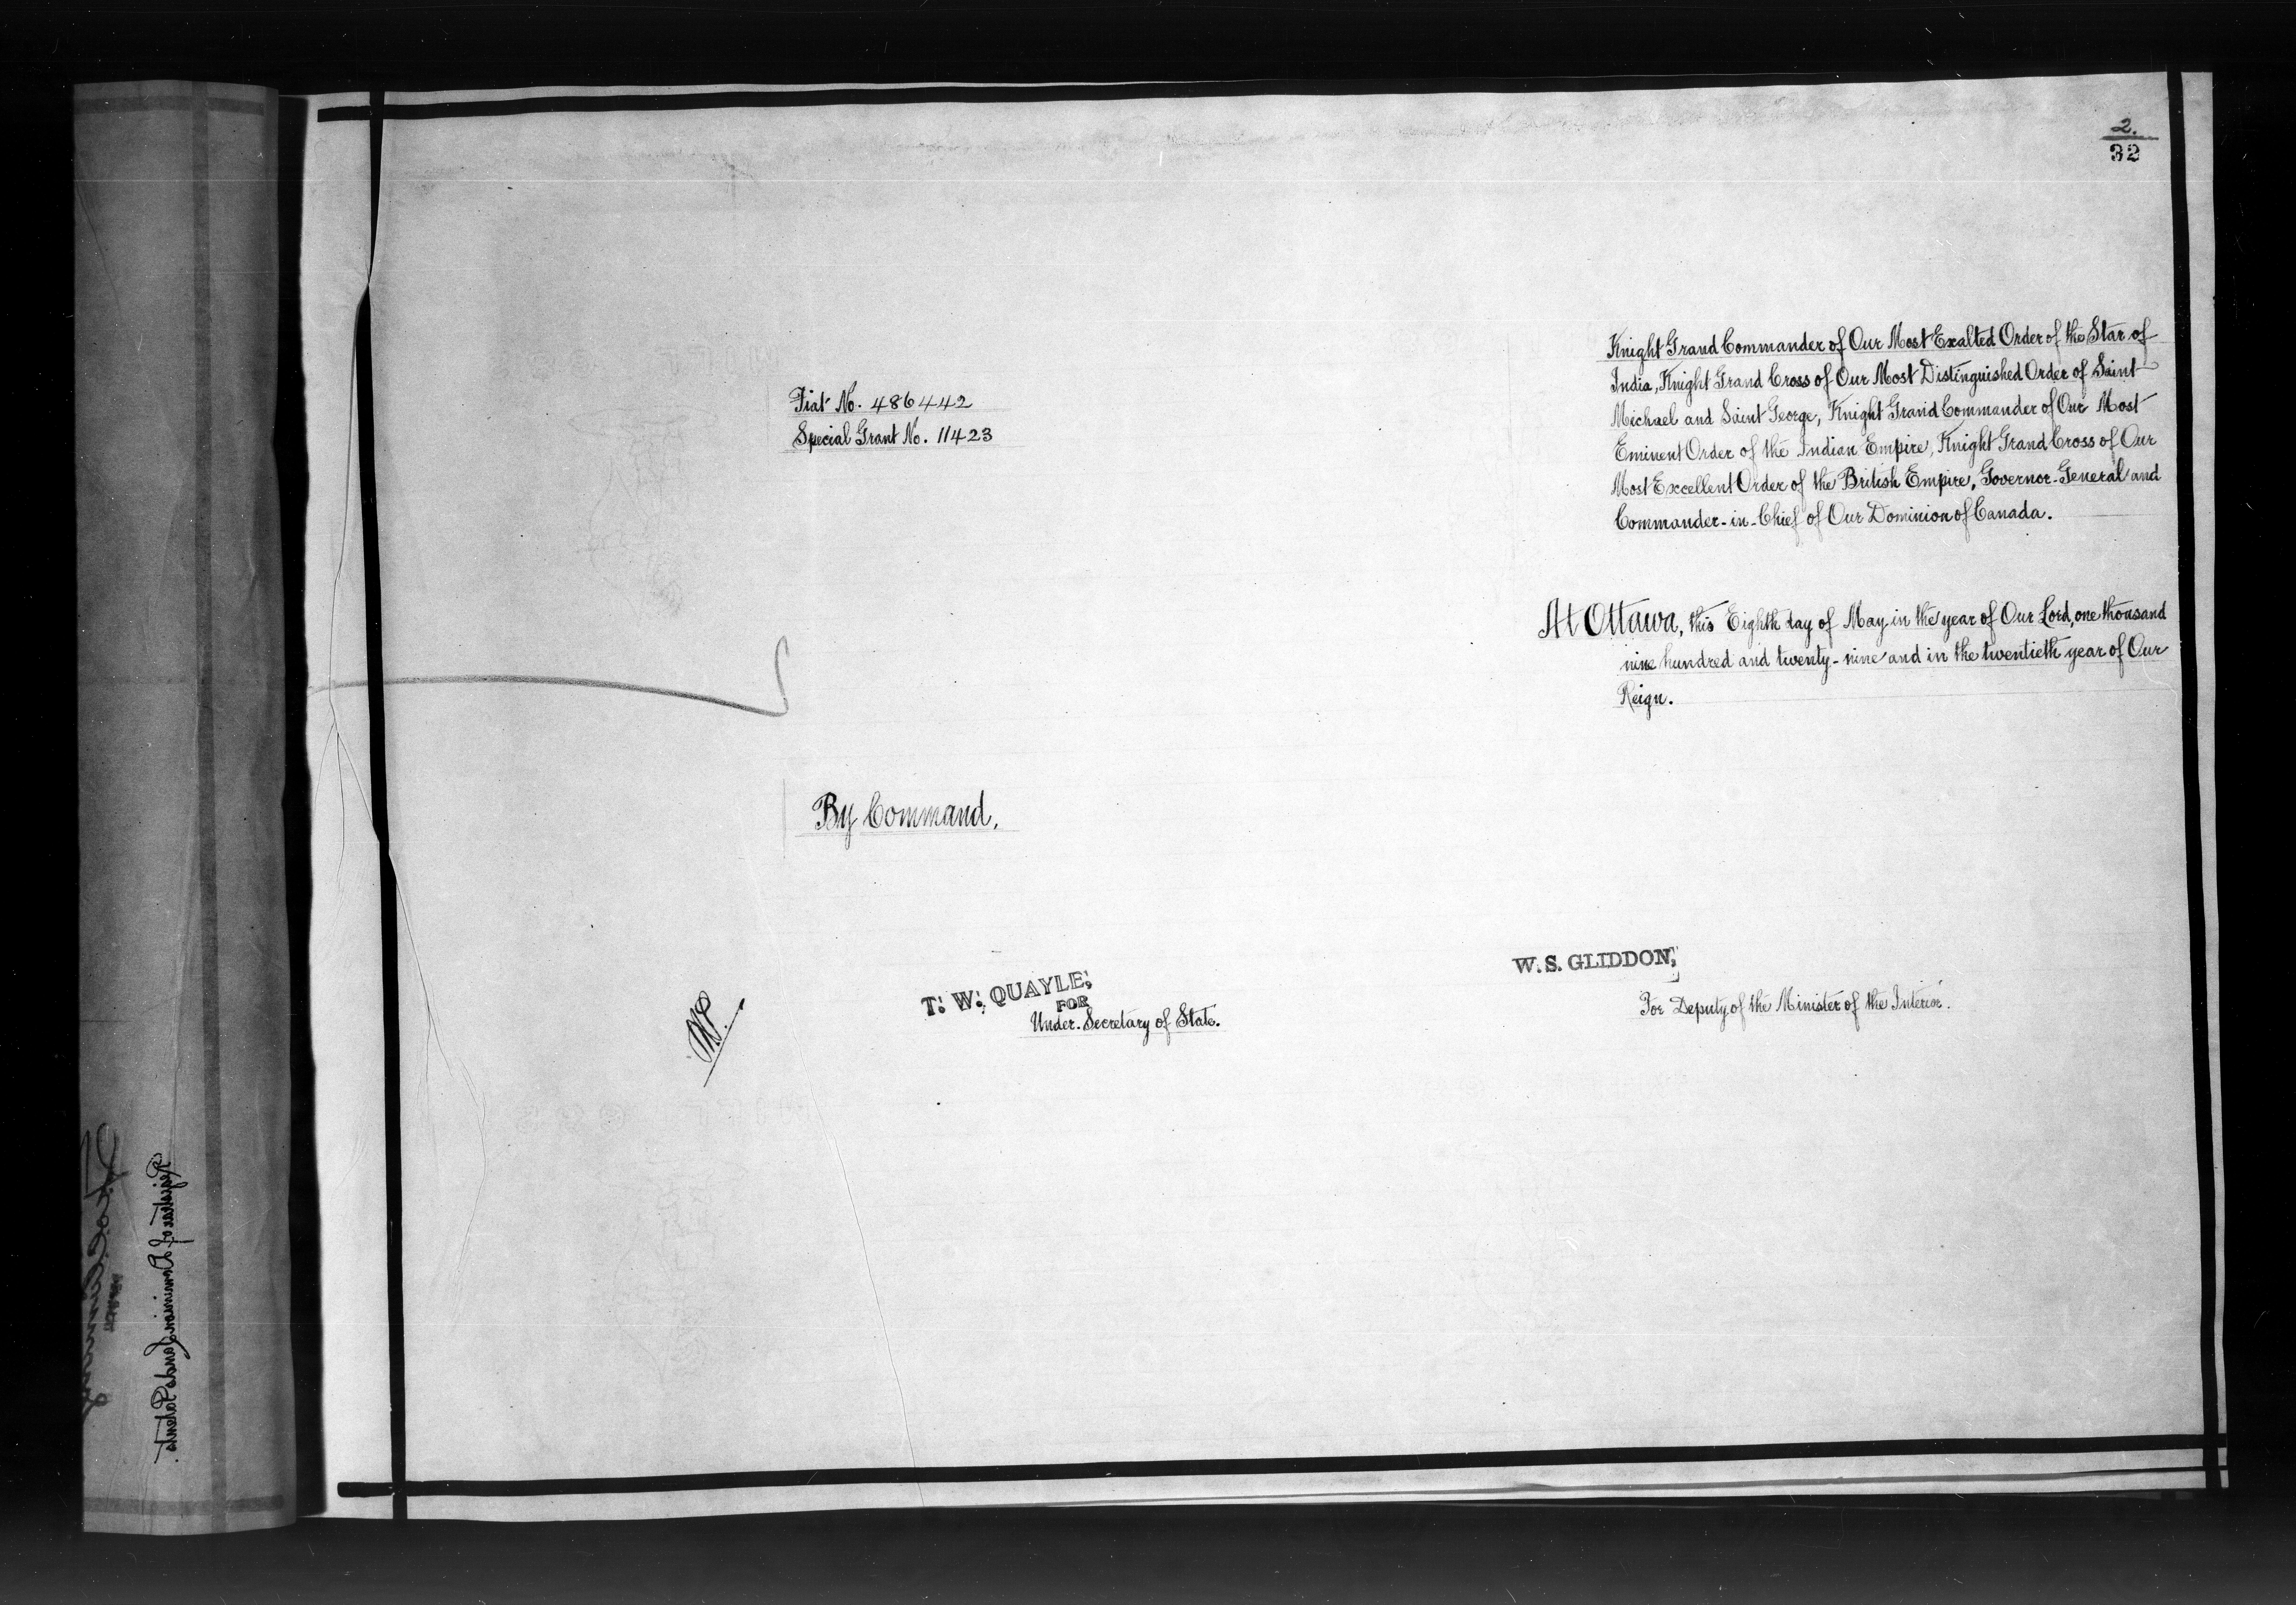 2.
32
Knight Grand Commander of Our Most Exalted Order of the Star of
India, Knight Grand Cross of Our Most Distinguished Order of Saint
Michael and Saint George, Knight Grand Commander of Our Most
Eminent Order of the Indian Empire, Knight Grand Cross of Our
Most Excellent Order of the British Empire, Governor-General and
Commander-in-Chief of Our Dominion of Canada.
Fiat No. 486442
Special Grant No. 11423
At Ottawa, this Eighth day of May in the year of Our Lord, one thousand
nine hundred and twenty-nine and in the twentieth year of Our
Reign.
By Command,
T. W. QUAYLE,
FOR
Under-Secretary of State.
W. S. GLIDDON,
For Deputy of the Minister of the Interior.
Registrar of Dominion Lands Patents.